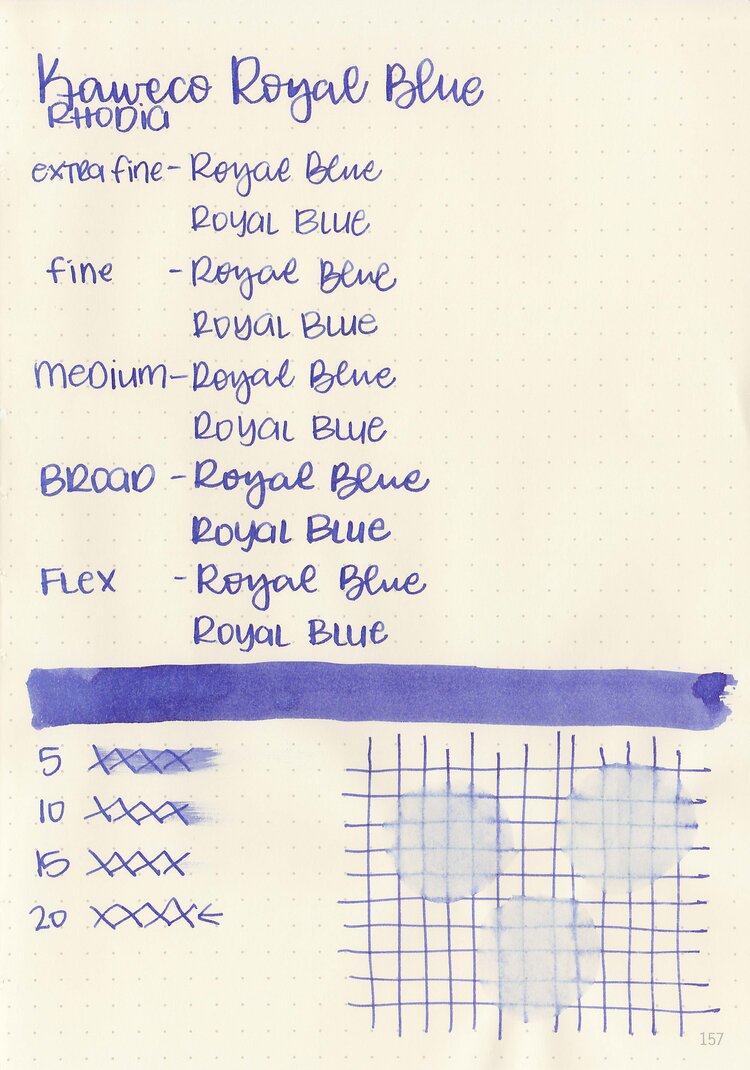 Kaweco Royal Blue
RHODIA
extra fine - Royal Blue
ROYAL BLUE
fine - Royal Blue
ROYAL BLUE
medium - Royal Blue
ROYAL BLUE
BROAD - Royal Blue
ROYAL BLUE
FLEX - Royal Blue
ROYAL BLUE
5 XXXX
10 XXXX
15 XXXX
20 XXXX←
157